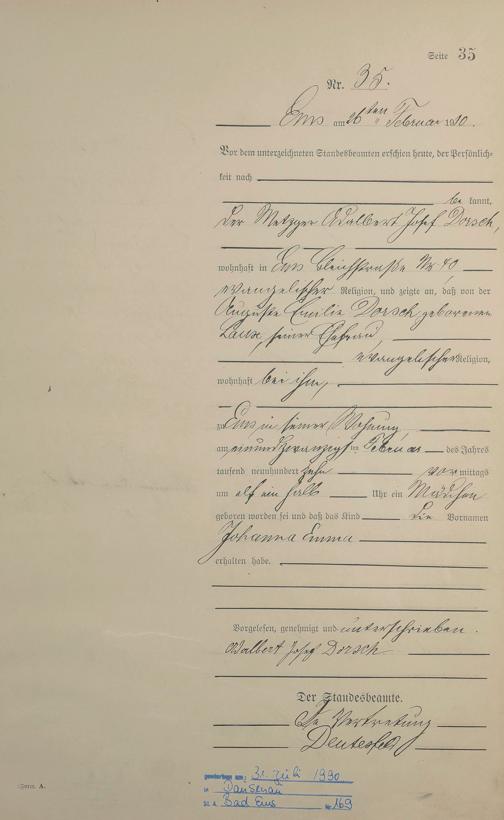 Seite 35
Nr. 35.
Ems am 26ten Februar 1910.
Vor dem unterzeichneten Standesbeamten erschien heute, der Persönlich-
keit nach
be kannt,
der Metzger Adalbert Josef Dorsch,
wohnhaft in Ems Bleichstraße Nr 40
evangelischer Religion, und zeigte an, daß von der
Auguste Emilie Dorsch geborenen
Laux, seiner Ehefrau,
evangelischer Religion,
wohnhaft bei ihm,
zu Ems in seiner Wohnung
am einundzwanzigsten Februar des Jahres
tausend neunhundert zehn vor mittags
um elf ein halb Uhr ein Mädchen
geboren worden sei und daß das Kind die Vornamen
Johanna Emma
erhalten habe.
Vorgelesen, genehmigt und unterschrieben.
Adalbert Josef Dorsch
Der Standesbeamte.
In Vertretung
gestorben am: 31. Juli 1990
in Dausenau
St. A. Bad Ems Nr. 169
Form. A.